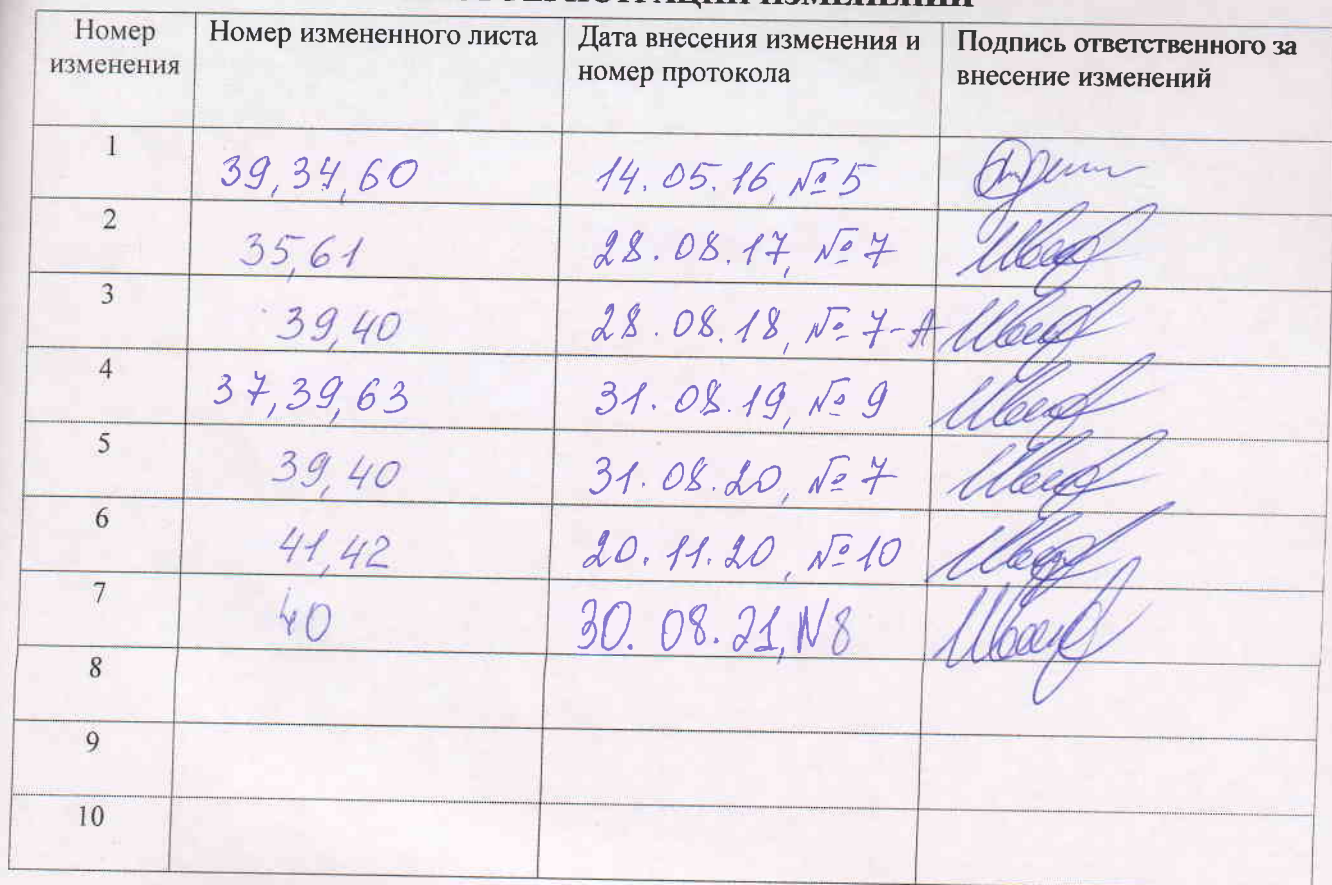 РЕГИСТРАЦИИ ИЗМЕНЕНИЙ
Номер изменения Номер измененного листа Дата внесения изменения и номер протокола Подпись ответственного за внесение изменений
1 39,34,60 14.05.16, №5
2 35,61 28.08.17, №7
3 39,40 28.08.18, №7-А
4 37,39,63 31.08.19, №9
5 39,40 31.08.20, №7
6 41,42 20.11.20, №10
7 40 30.08.21, N8
8
9
10